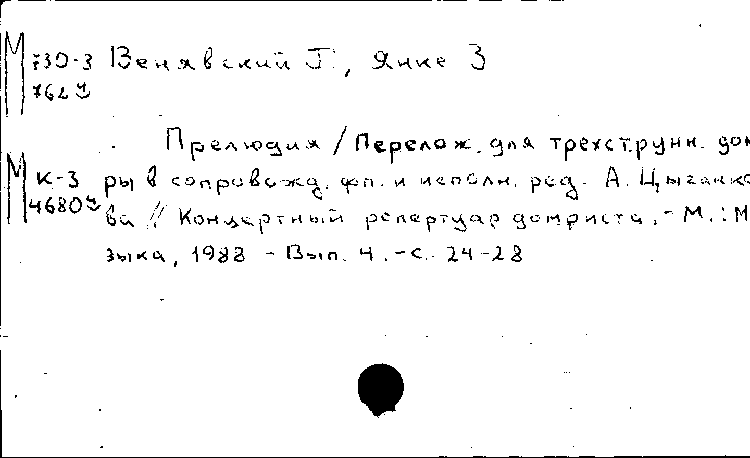 М 730-3 Венявский Г., Янке З
762
Прелюдия / Перелож. для трехструнн. дом
М К-3 ры в сопровожд. фп. и исполн. ред. А. Цыганко
4680 ва // Концертный репертуар домриста. - М.: М
зыка, 1983 - Вып. 4. - с. 24-28